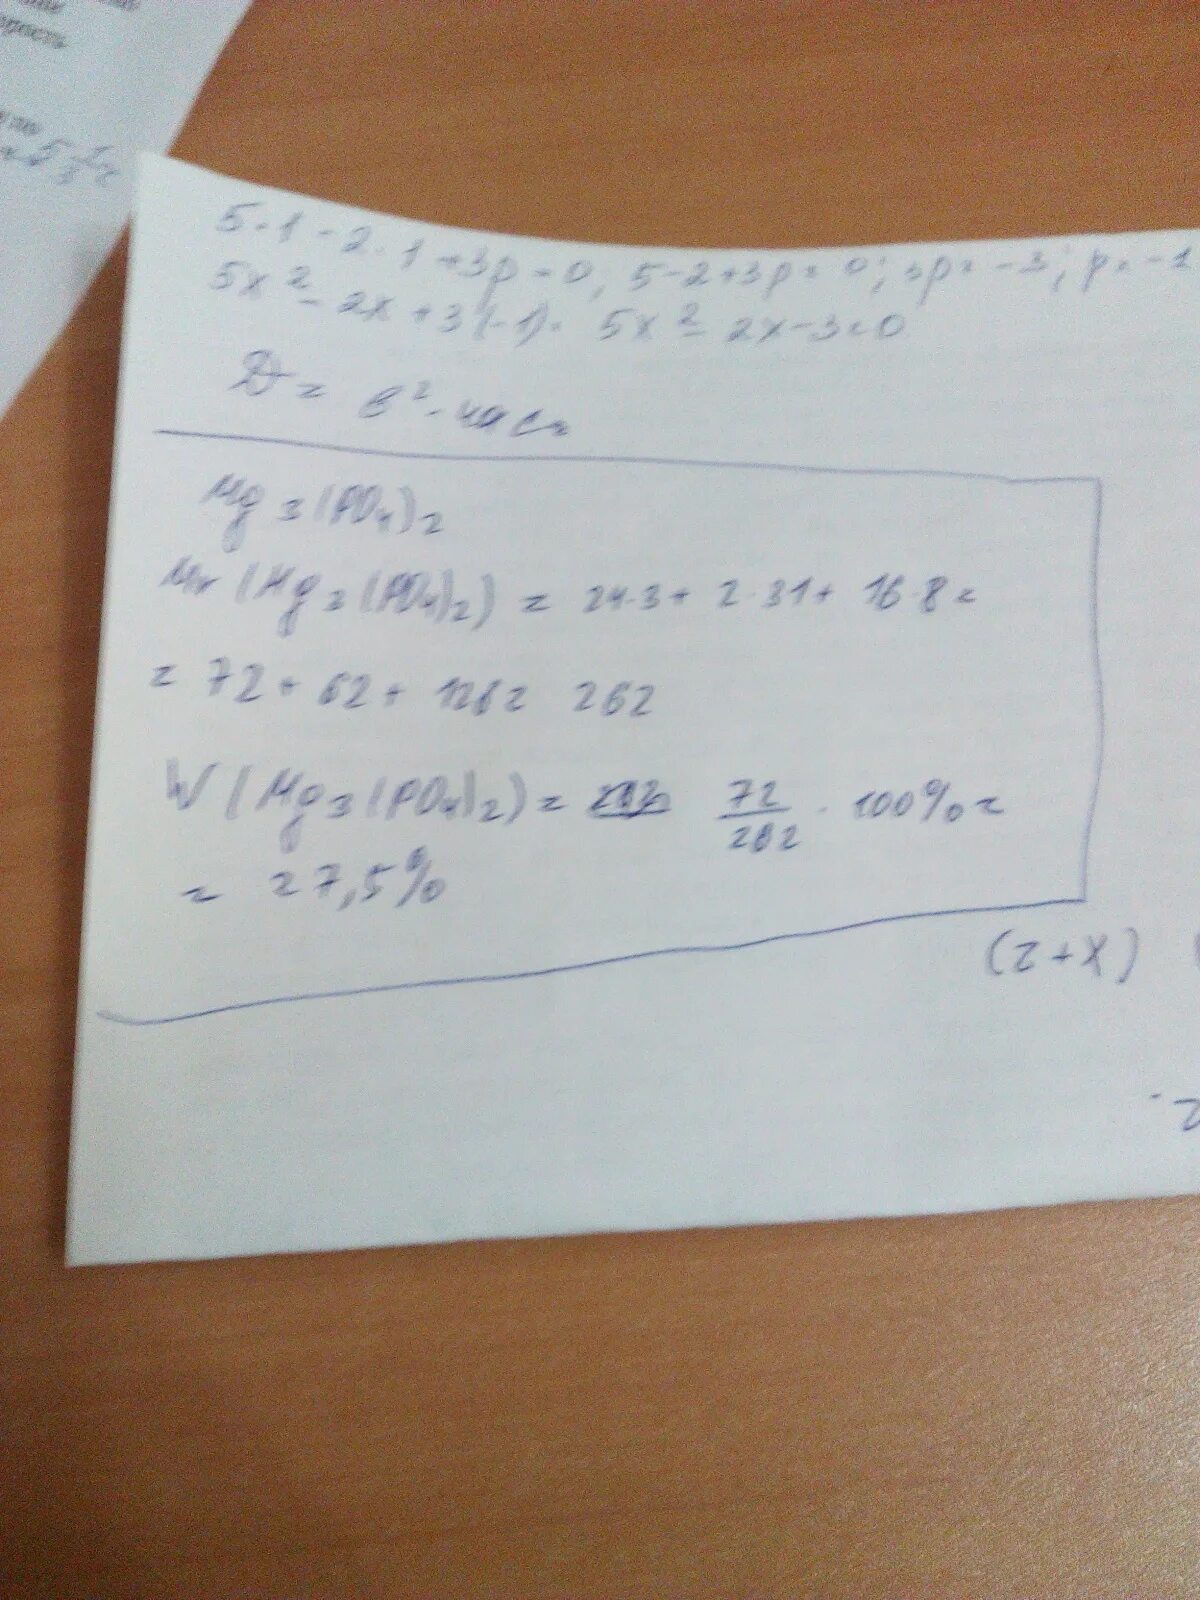 5·1-2·1+3p=0; 5-2+3p=0; 3p=-3; p=-1
5x²-2x+3(-1)= 5x²-2x-3=0
D= в²-4ac=
Mg₃(PO₄)₂
Mr (Mg₃(PO₄)₂) = 24·3+ 2·31+ 16·8=
= 72+62+128= 262
W(Mg₃(PO₄)₂)= 72/262 · 100%=
= 27,5%
(2+x)